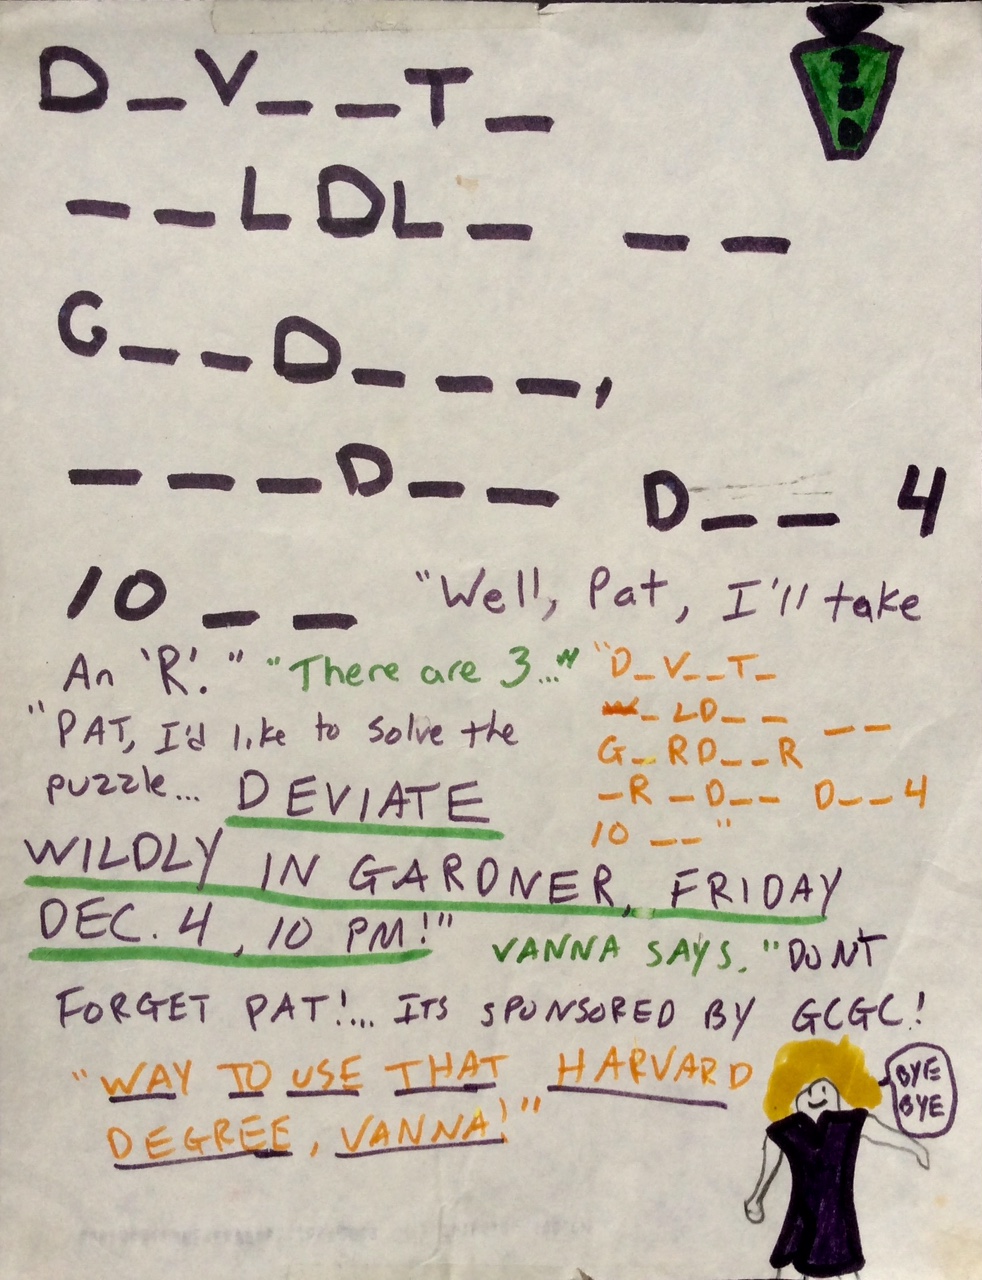 D_V__T_
__LDL_ __
G__D___,
___D__ D__ 4
10 __ "Well, Pat, I'll take
An 'R'." "There are 3..." "D_V__T_
"PAT, I'd like to solve the
_LD__ __
puzzle... DEVIATE
G_RD__R
_R_D__ D__4
10 __"
WILDLY IN GARDNER, FRIDAY
DEC. 4, 10 PM!" VANNA SAYS, "DON'T
FORGET PAT!... ITS SPONSORED BY GCGC!
"WAY TO USE THAT HARVARD
DEGREE, VANNA!"
BYE
BYE